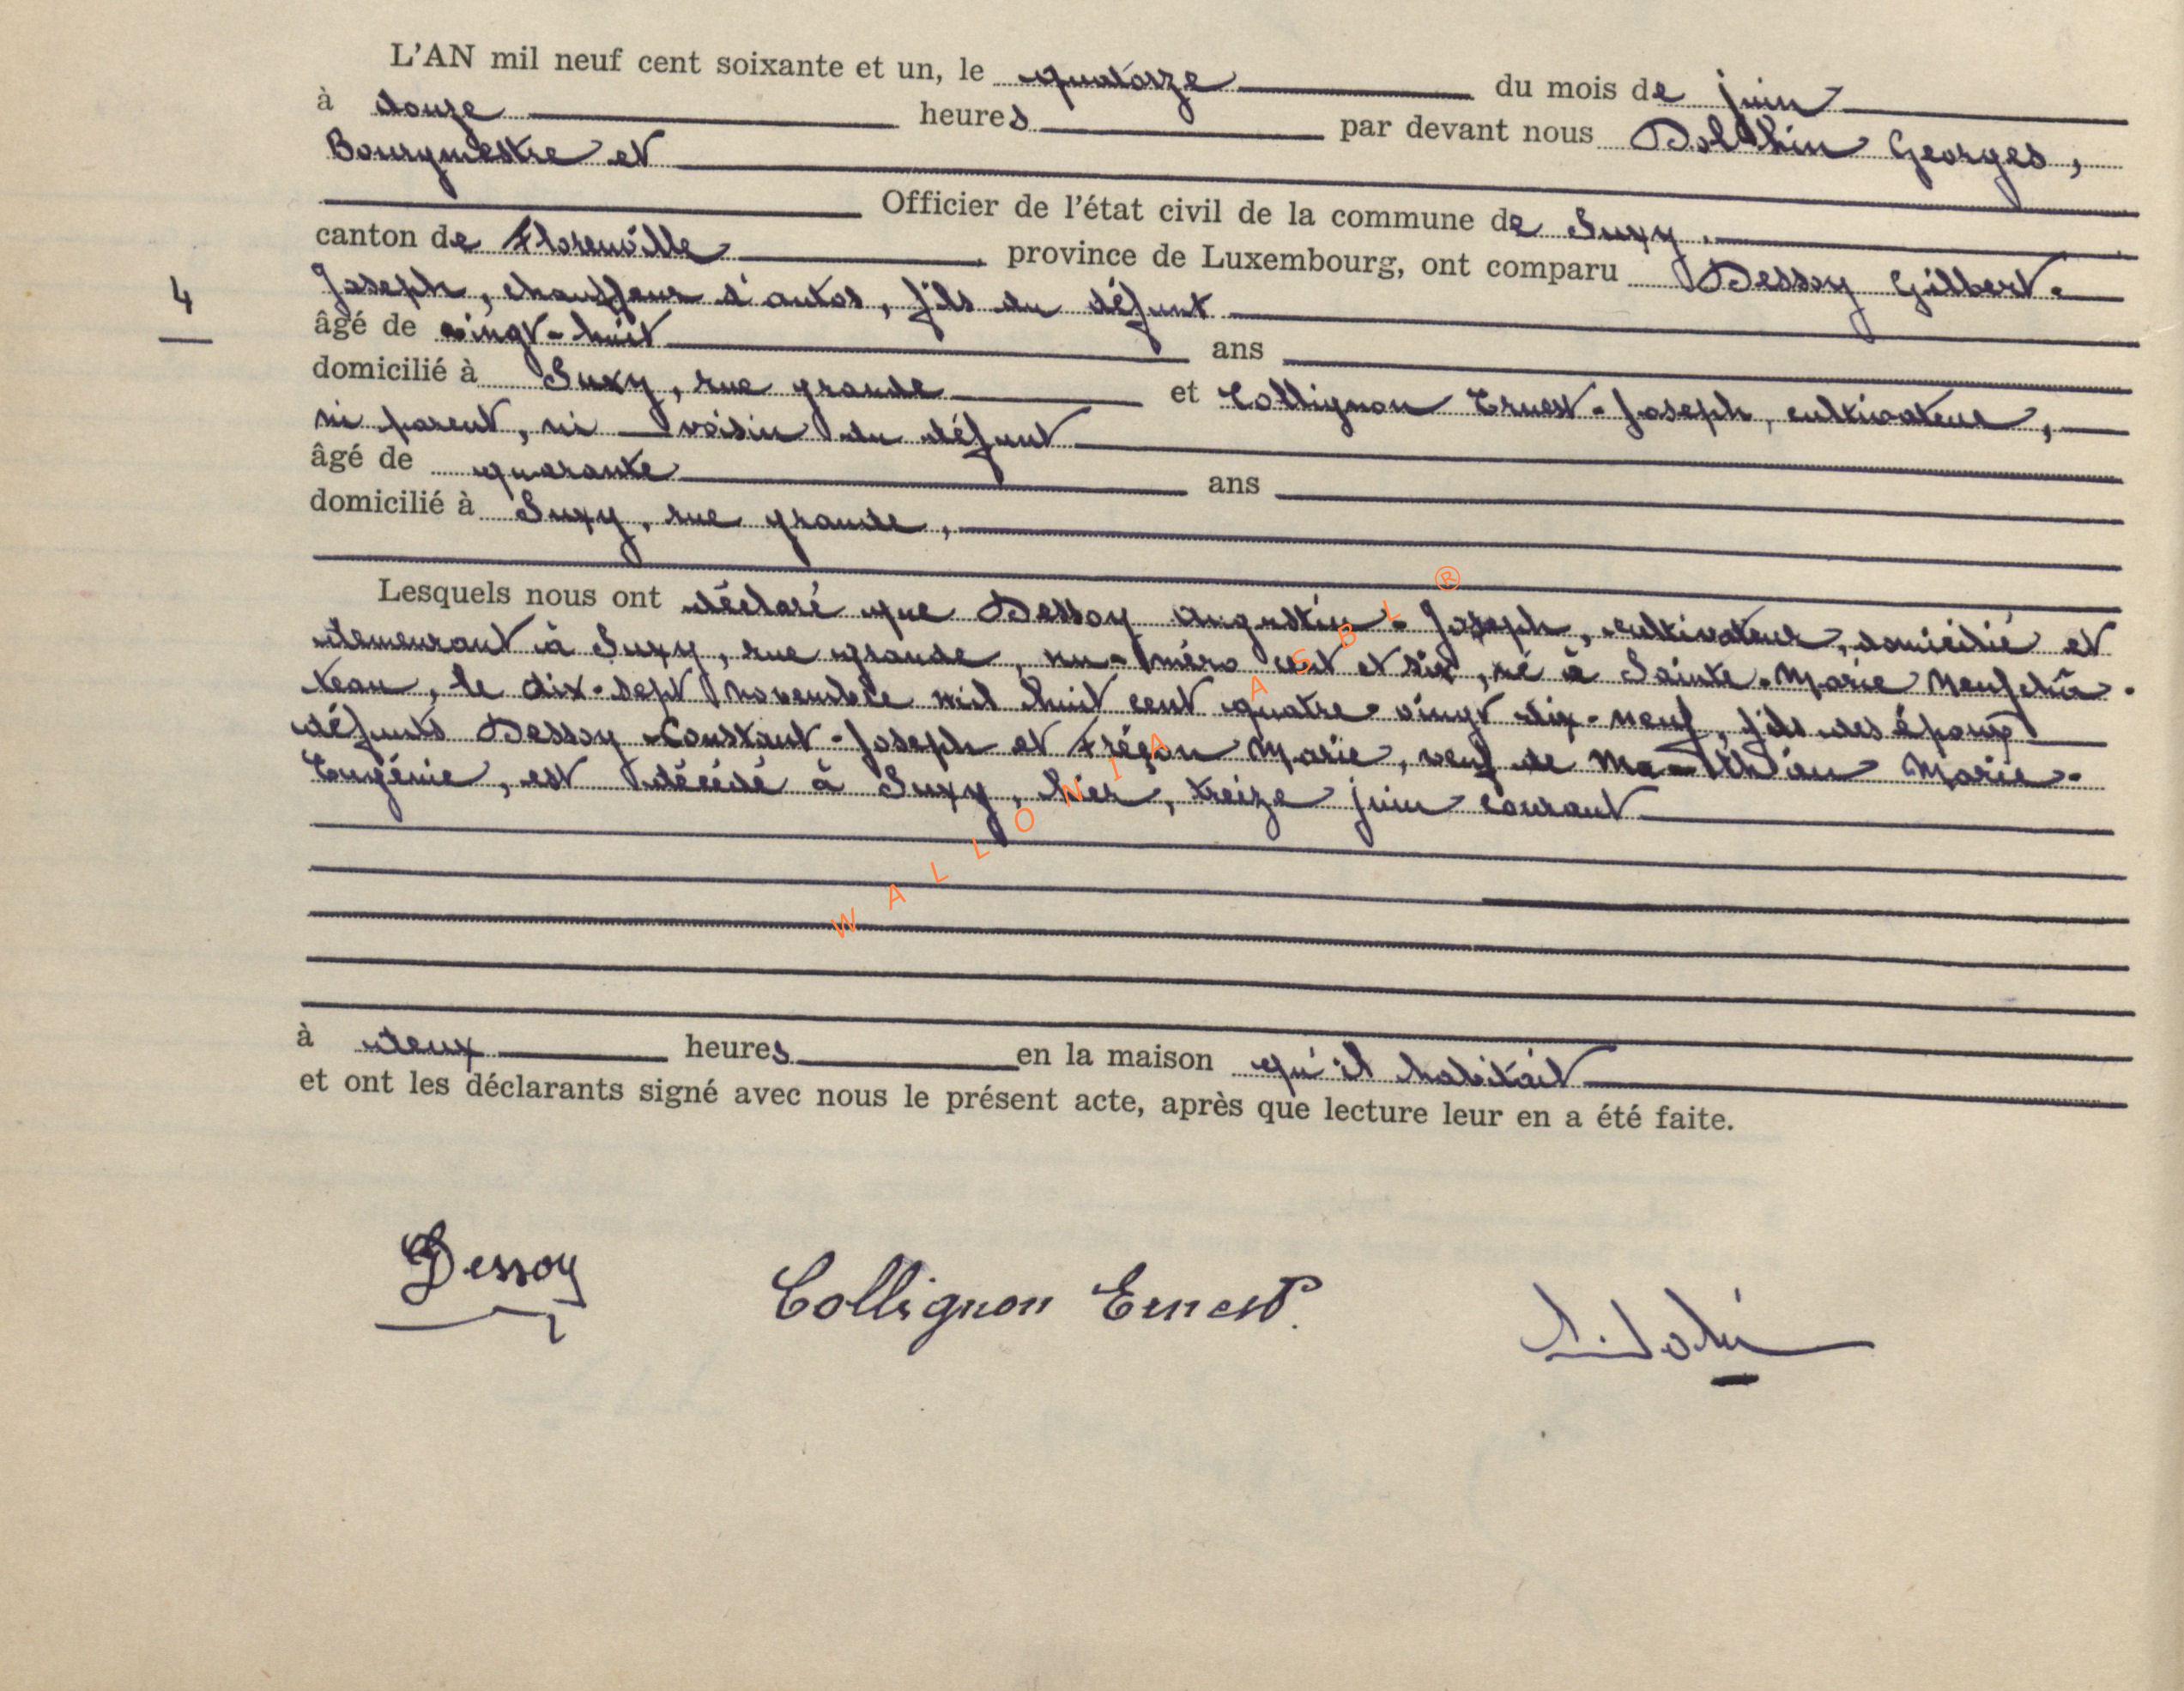 L'AN mil neuf cent soixante et un, le quatorze du mois de juin
à douze heures par devant nous Dolthin Georges,
Bourgmestre et
Officier de l'état civil de la commune de Suxy,
canton de Florenville, province de Luxembourg, ont comparu Dessoy Gilbert-
4
Joseph, chauffeur d'autos, fils du défunt
âgé de vingt-huit ans
domicilié à Suxy, rue grande et Collignon Ernest-Joseph, cultivateur,
ni parent, ni voisin du défunt
âgé de quarante ans
domicilié à Suxy, rue grande,
Lesquels nous ont déclaré que Dessoy Augustin-Joseph, cultivateur, domicilié et
demeurant à Suxy, rue grande, numéro cent et six, né à Sainte-Marie Neufchâ-
teau, le dix-sept novembre mil huit cent quatre-vingt dix-neuf, fils des époux
défunts Dessoy Constant-Joseph et Frégon Marie, veuf de Ma-thieu Marie-
Eugénie, est décédé à Suxy, hier, treize juin courant
à deux heures en la maison qu'il habitait
et ont les déclarants signé avec nous le présent acte, après que lecture leur en a été faite.
Dessoy Collignon Ernest.
WALLONIA ASBL ®